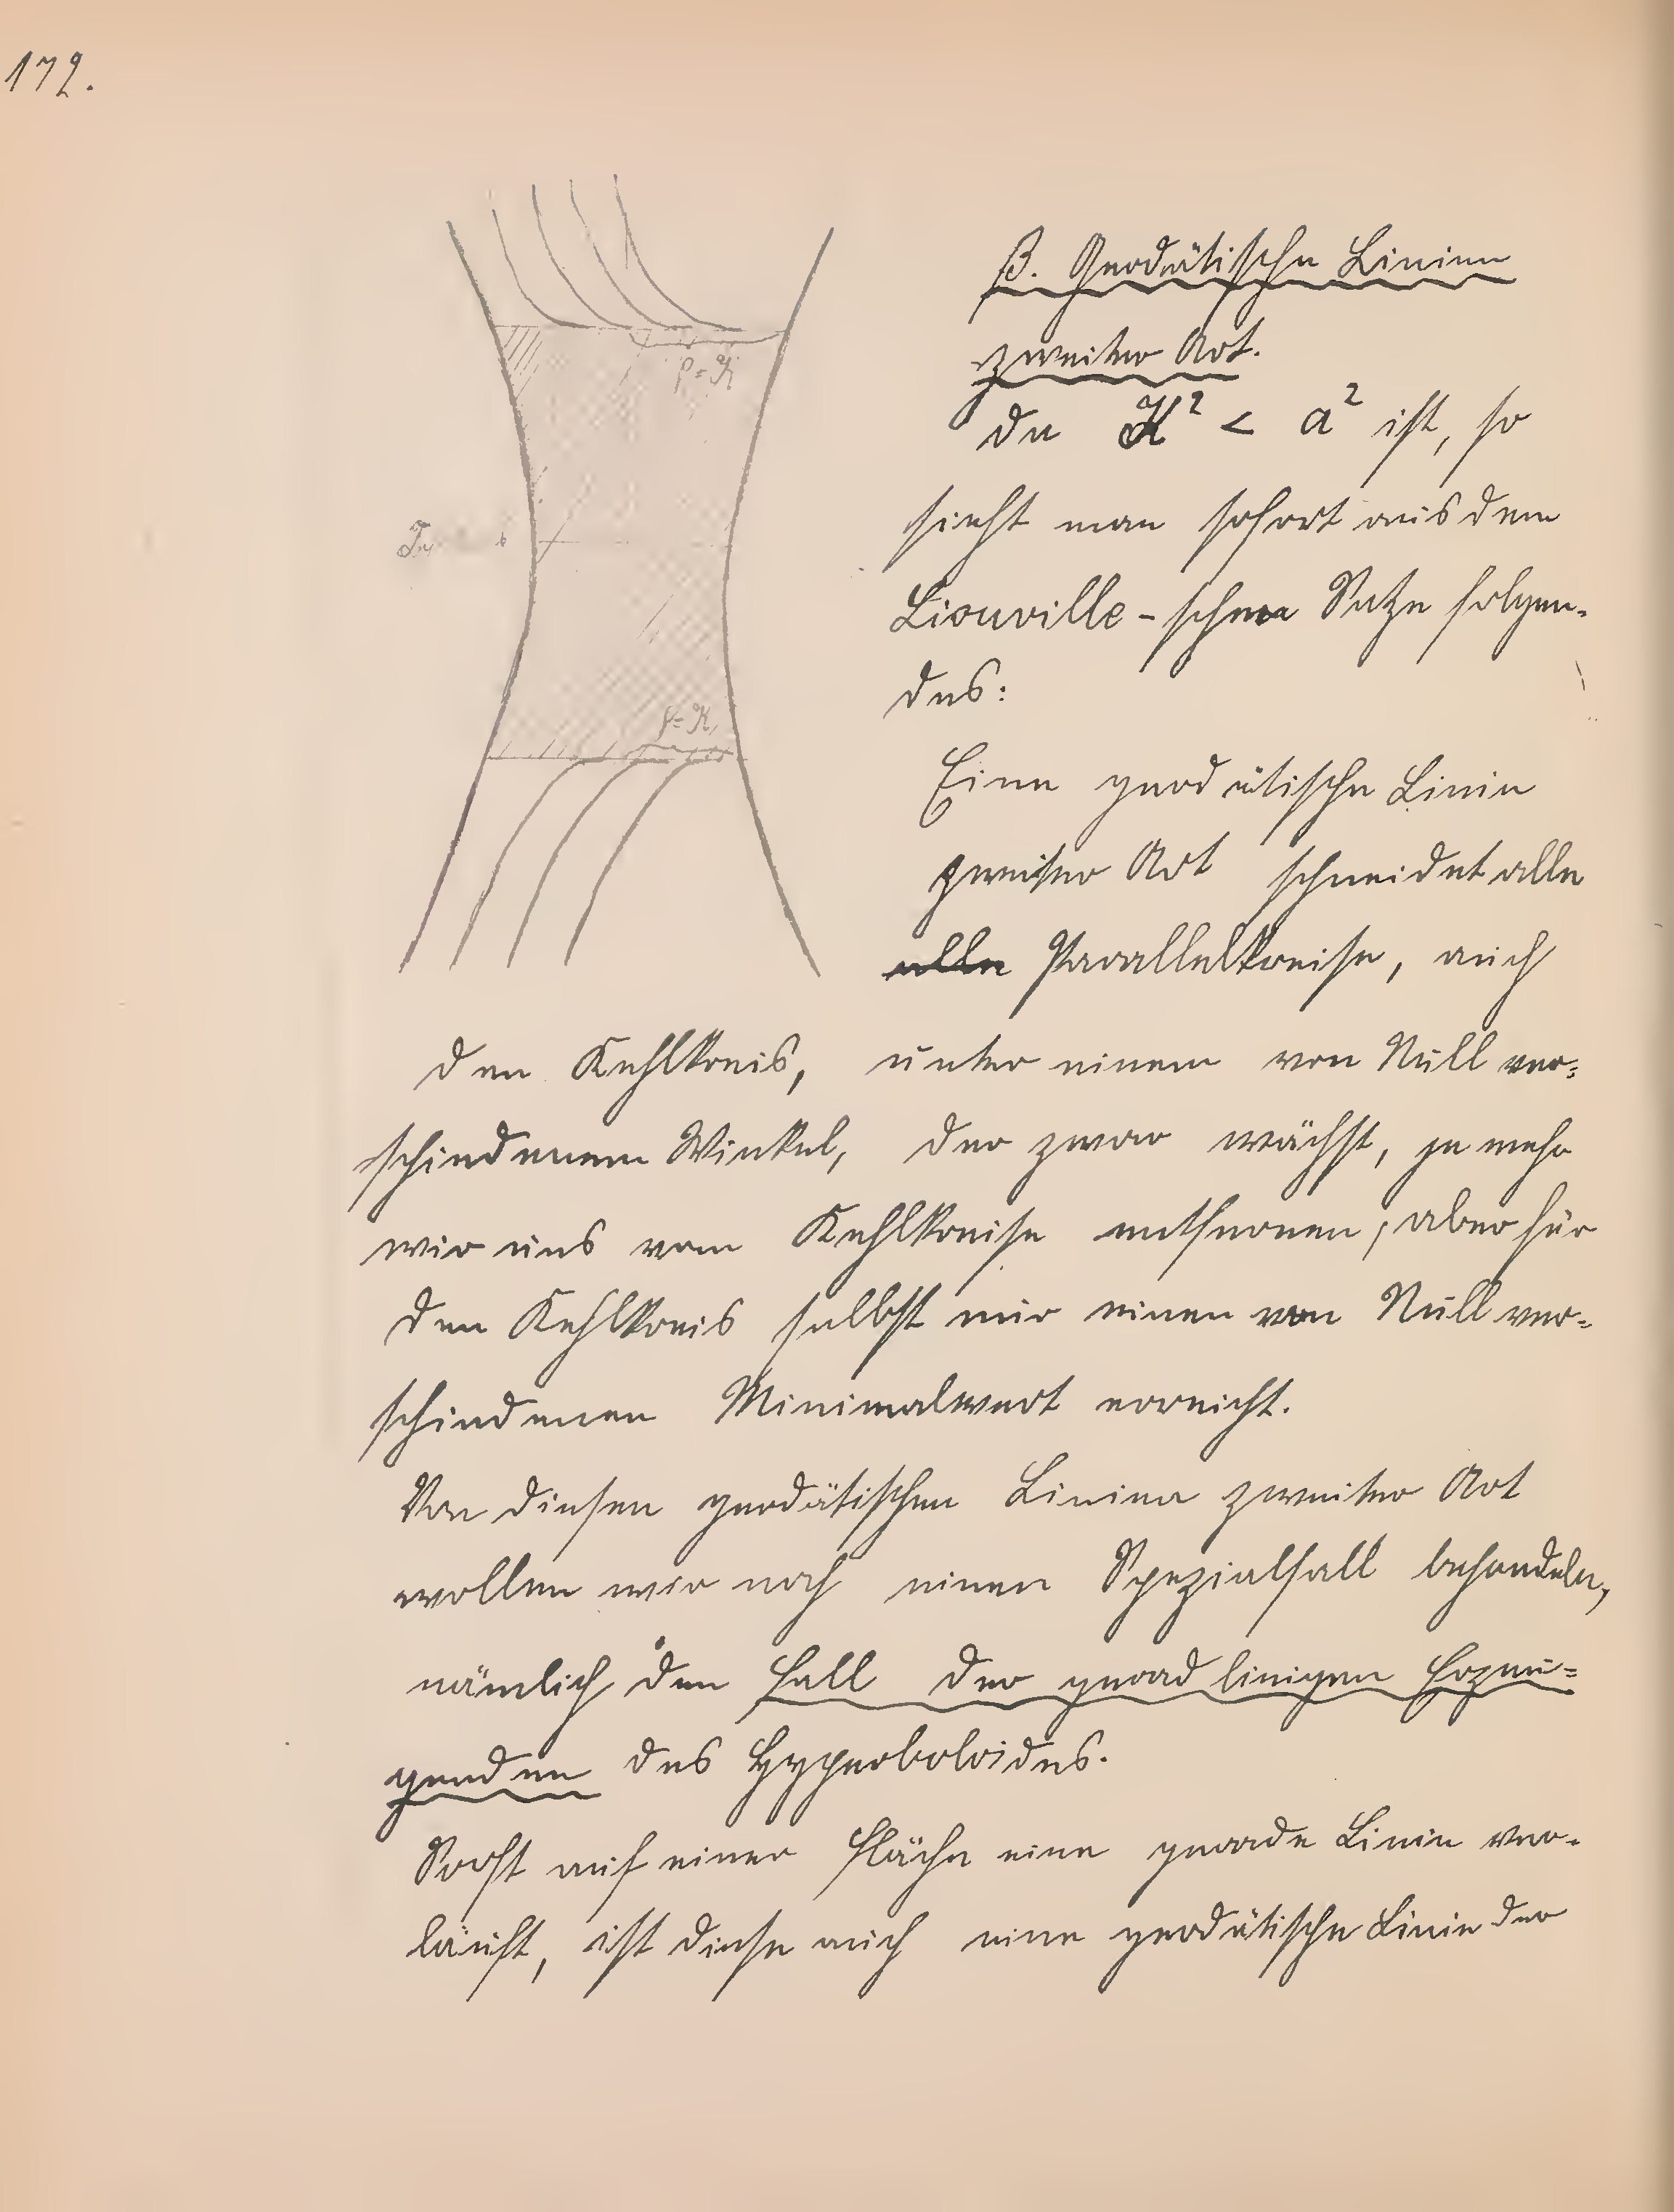 172.
β. Geodätische Linien
zweiter Art.
Da K² < a² ist, so
sieht man sofort aus dem
Liouville-schen Satze folgen-
des:
Eine geodätische Linie
zweiter Art schneidet alle
alle Parallelkreise, auch
den Kehlkreis, unter einem von Null ver=
schiedenen Winkel, der zwar wächst, je mehr
wir uns vom Kehlkreise entfernen, aber für
den Kehlkreis selbst nur einen von Null ver=
schiedenen Minimalwert erreicht.
Von diesen geodätischen Linien zweiter Art
wollen wir noch einen Spezialfall behandeln,
nämlich den Fall der geradlinigen Erzeu=
genden des Hyperboloides.
Sooft auf einer Fläche eine gerade Linie ver-
läuft, ist diese auch eine geodätische Linie der
ρ=K
ρ=K